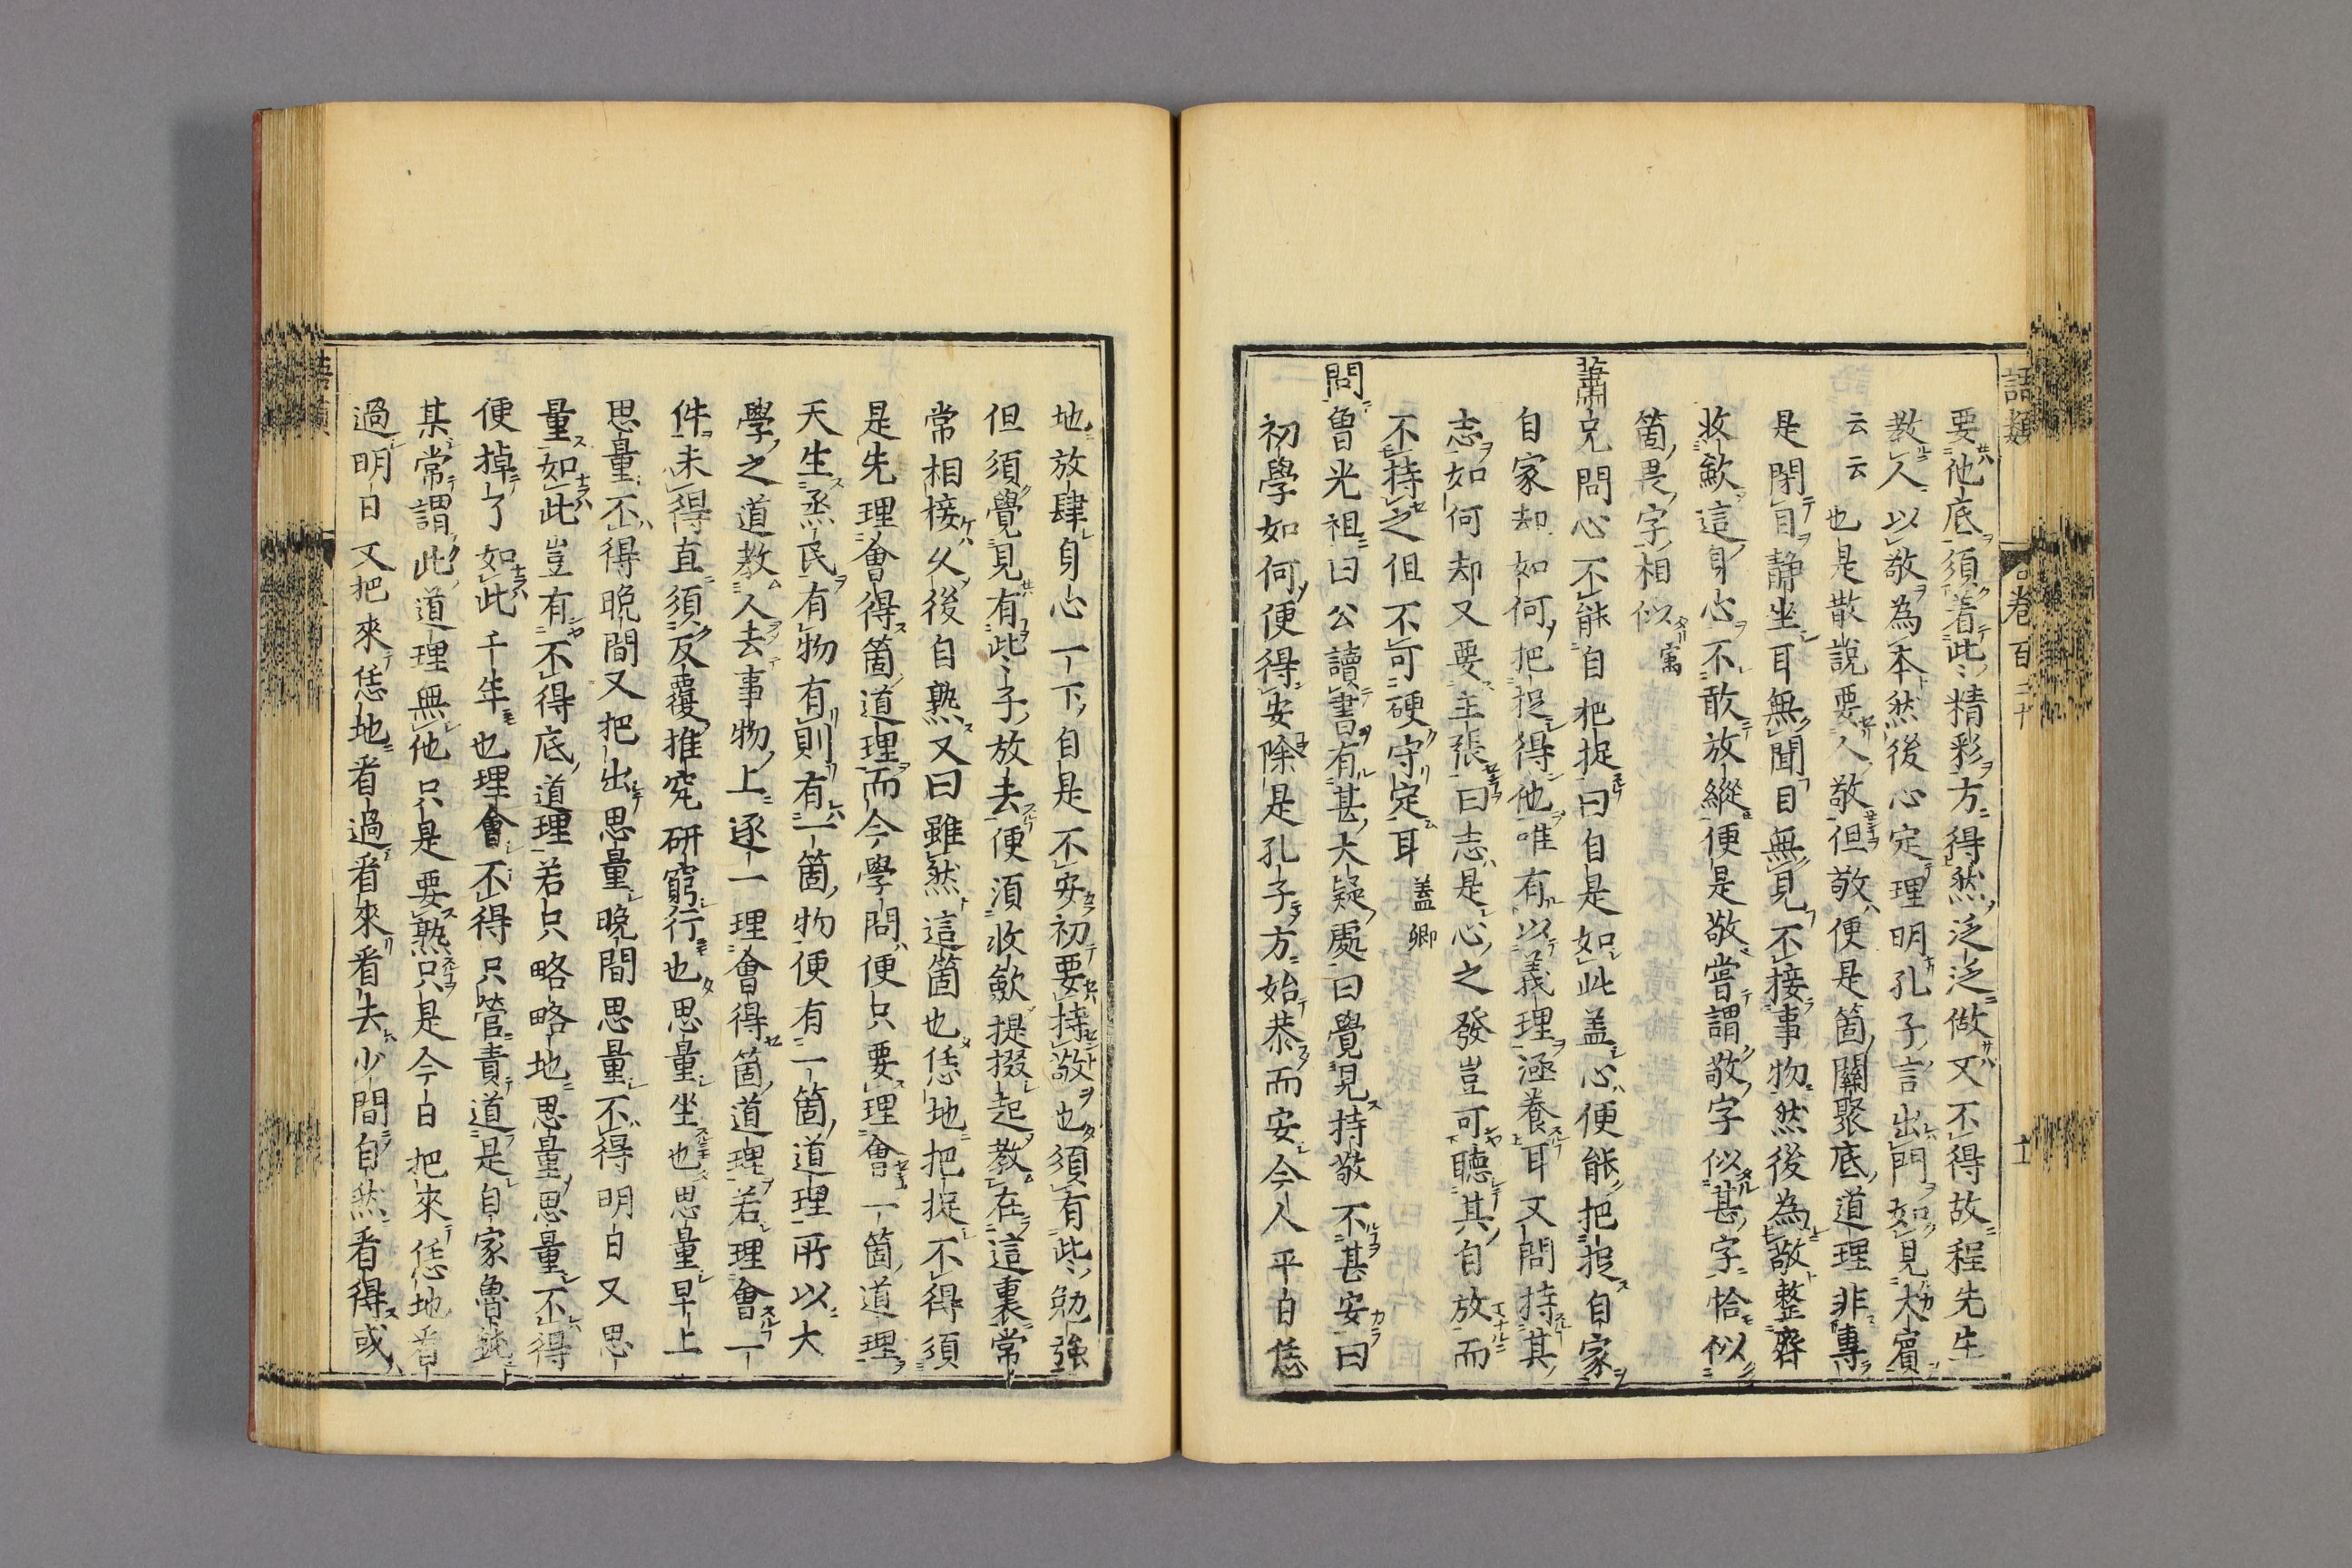 語類
卷百二十
十一
要他底須着些精彩方得然泛泛做又不得故程先生
教人以敬為本然後心定理明孔子言出門如見大賓
云云也是散說要人敬但敬便是箇關聚底道理非專
是閉目靜坐耳無聞目無見不接事物然後為敬整齊
收斂這身心不敢放縱便是敬嘗謂敬字似甚字恰似
箇畏字相似寓
蕭兄問心不能自把捉曰自是如此蓋心便能把捉自家
自家却如何把捉得他唯有以義理涵養耳又問持其
志如何却又要主張曰志是心之發豈可聽其自放而
不持之但不可硬守定耳蓋卿
問魯光祖曰公讀書有甚大疑處曰覺見持敬不甚安曰
初學如何便得安除是孔子方始恭而安今人平白恁
地放肆身心一下自是不安初要持敬也須有些勉強
但須覺見有些子放去便須收斂提掇起教在這裏常
常相接久後自熟又曰雖然這箇也恁地把捉不得須
是先理會得箇道理而今學問便只要理會一箇道理
天生烝民有物有則有一箇物便有一箇道理所以大
學之道教人去事物上逐一理會得箇道理若理會一
件未得直須反覆推究研窮行也思量坐也思量早上
思量不得晚間又把出思量晚間思量不得明日又思
量如此豈有不得底道理若只略略地思量思量不得
便掉了如此千年也理會不得只管責道是自家魯鈍
某常謂此道理無他只是要熟只是今日把來恁地看
過明日又把來恁地看過看來看去少間自然看得或
語類